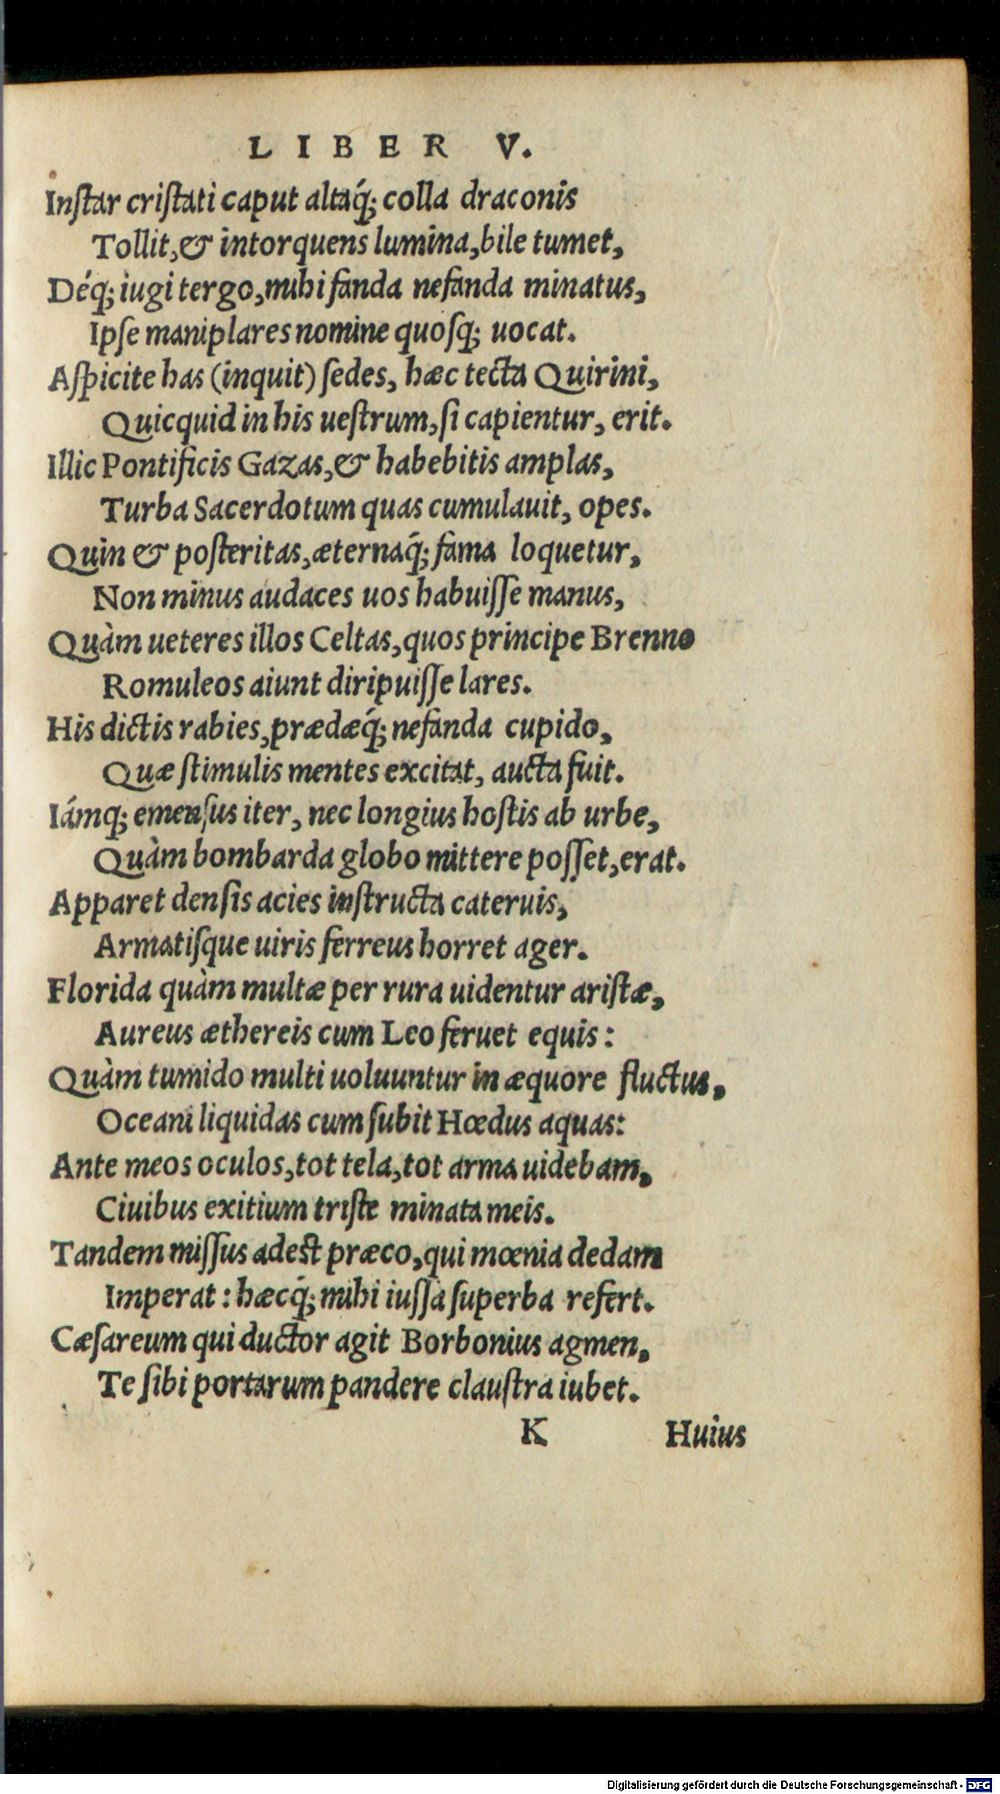 LIBER V.
Instar cristati caput altaq́; colla draconis
Tollit, & intorquens lumina, bile tumet,
Déq; iugi tergo, mihi fanda nefanda minatus,
Ipse maniplares nomine quosq; uocat.
Aspicite has (inquit) sedes, hæc tecta Quirini,
Quicquid in his uestrum, si capientur, erit.
Illic Pontificis Gazas, & habebitis amplas,
Turba Sacerdotum quas cumulauit, opes.
Quin & posteritas, æternaq́; fama loquetur,
Non minus audaces uos habuisse manus,
Quàm ueteres illos Celtas, quos principe Brenno
Romuleos aiunt diripuisse lares.
His dictis rabies, prædæq́; nefanda cupido,
Quæ stimulis mentes excitat, aucta fuit.
Iámq; emensus iter, nec longius hostis ab urbe,
Quàm bombarda globo mittere posset, erat.
Apparet densis acies instructa cateruis,
Armatisque uiris ferreus horret ager.
Florida quàm multæ per rura uidentur aristæ,
Aureus æthereis cum Leo feruet equis:
Quàm tumido multi uoluuntur in æquore fluctus,
Oceani liquidas cum subit Hœdus aquas:
Ante meos oculos, tot tela, tot arma uidebam,
Ciuibus exitium triste minata meis.
Tandem missus adest præco, qui mœnia dedam
Imperat: hæcq́; mihi iussa superba refert.
Cæsareum qui ductor agit Borbonius agmen,
Te sibi portarum pandere claustra iubet.
K Huius
Digitalisierung gefördert durch die Deutsche Forschungsgemeinschaft - DFG